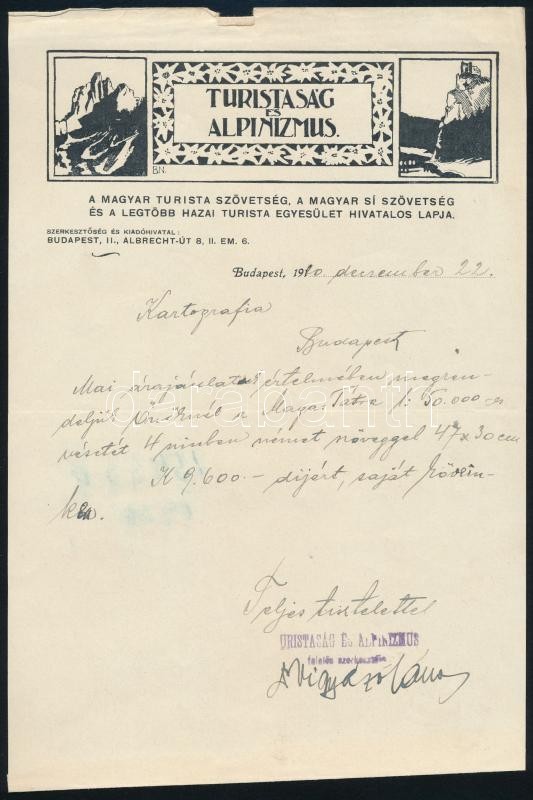 TURISTASÁG
ÉS
ALPINIZMUS.
BN.
A MAGYAR TURISTA SZÖVETSÉG, A MAGYAR SÍ SZÖVETSÉG
ÉS A LEGTÖBB HAZAI TURISTA EGYESÜLET HIVATALOS LAPJA.
SZERKESZTŐSÉG ÉS KIADÓHIVATAL:
BUDAPEST, II., ALBRECHT-ÚT 8, II. EM. 6.
Budapest, 1920 december 22.
Kartografia
Budapest
Mai árajánlatuk értelmében megren-
deljük Önöknél a Magas Tátra 1:50.000-es
vésetét 4 szinben német szöveggel 47x30 cm
K 9.600.— dijért, saját
Teljes tisztelettel
URISTASÁG ÉS ALPINIZMUS
felelős szerkesztője
Vigyázó János
darabanth